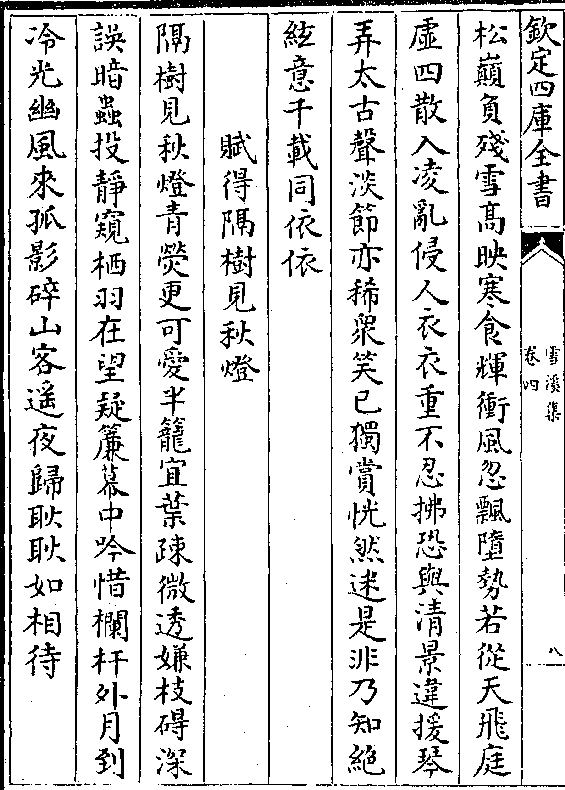 欽定四庫全書
雪溪集
卷四
八
松巔負殘雪高映寒食輝衝風忽飄墮勢若從天飛庭
虛四散入凌亂侵人衣衣重不忍拂恐與清景違援琴
弄太古聲淡節亦稀衆笑已獨賞恍然迷是非乃知絶
絃意千載同依依
賦得隔樹見秋燈
隔樹見秋燈青熒更可愛半籠宜葉疎微透嫌枝碍深
誤暗蟲投靜窺栖羽在望疑簾幕中吟惜欄杆外月到
冷光幽風來孤影碎山客遥夜歸耿耿如相待